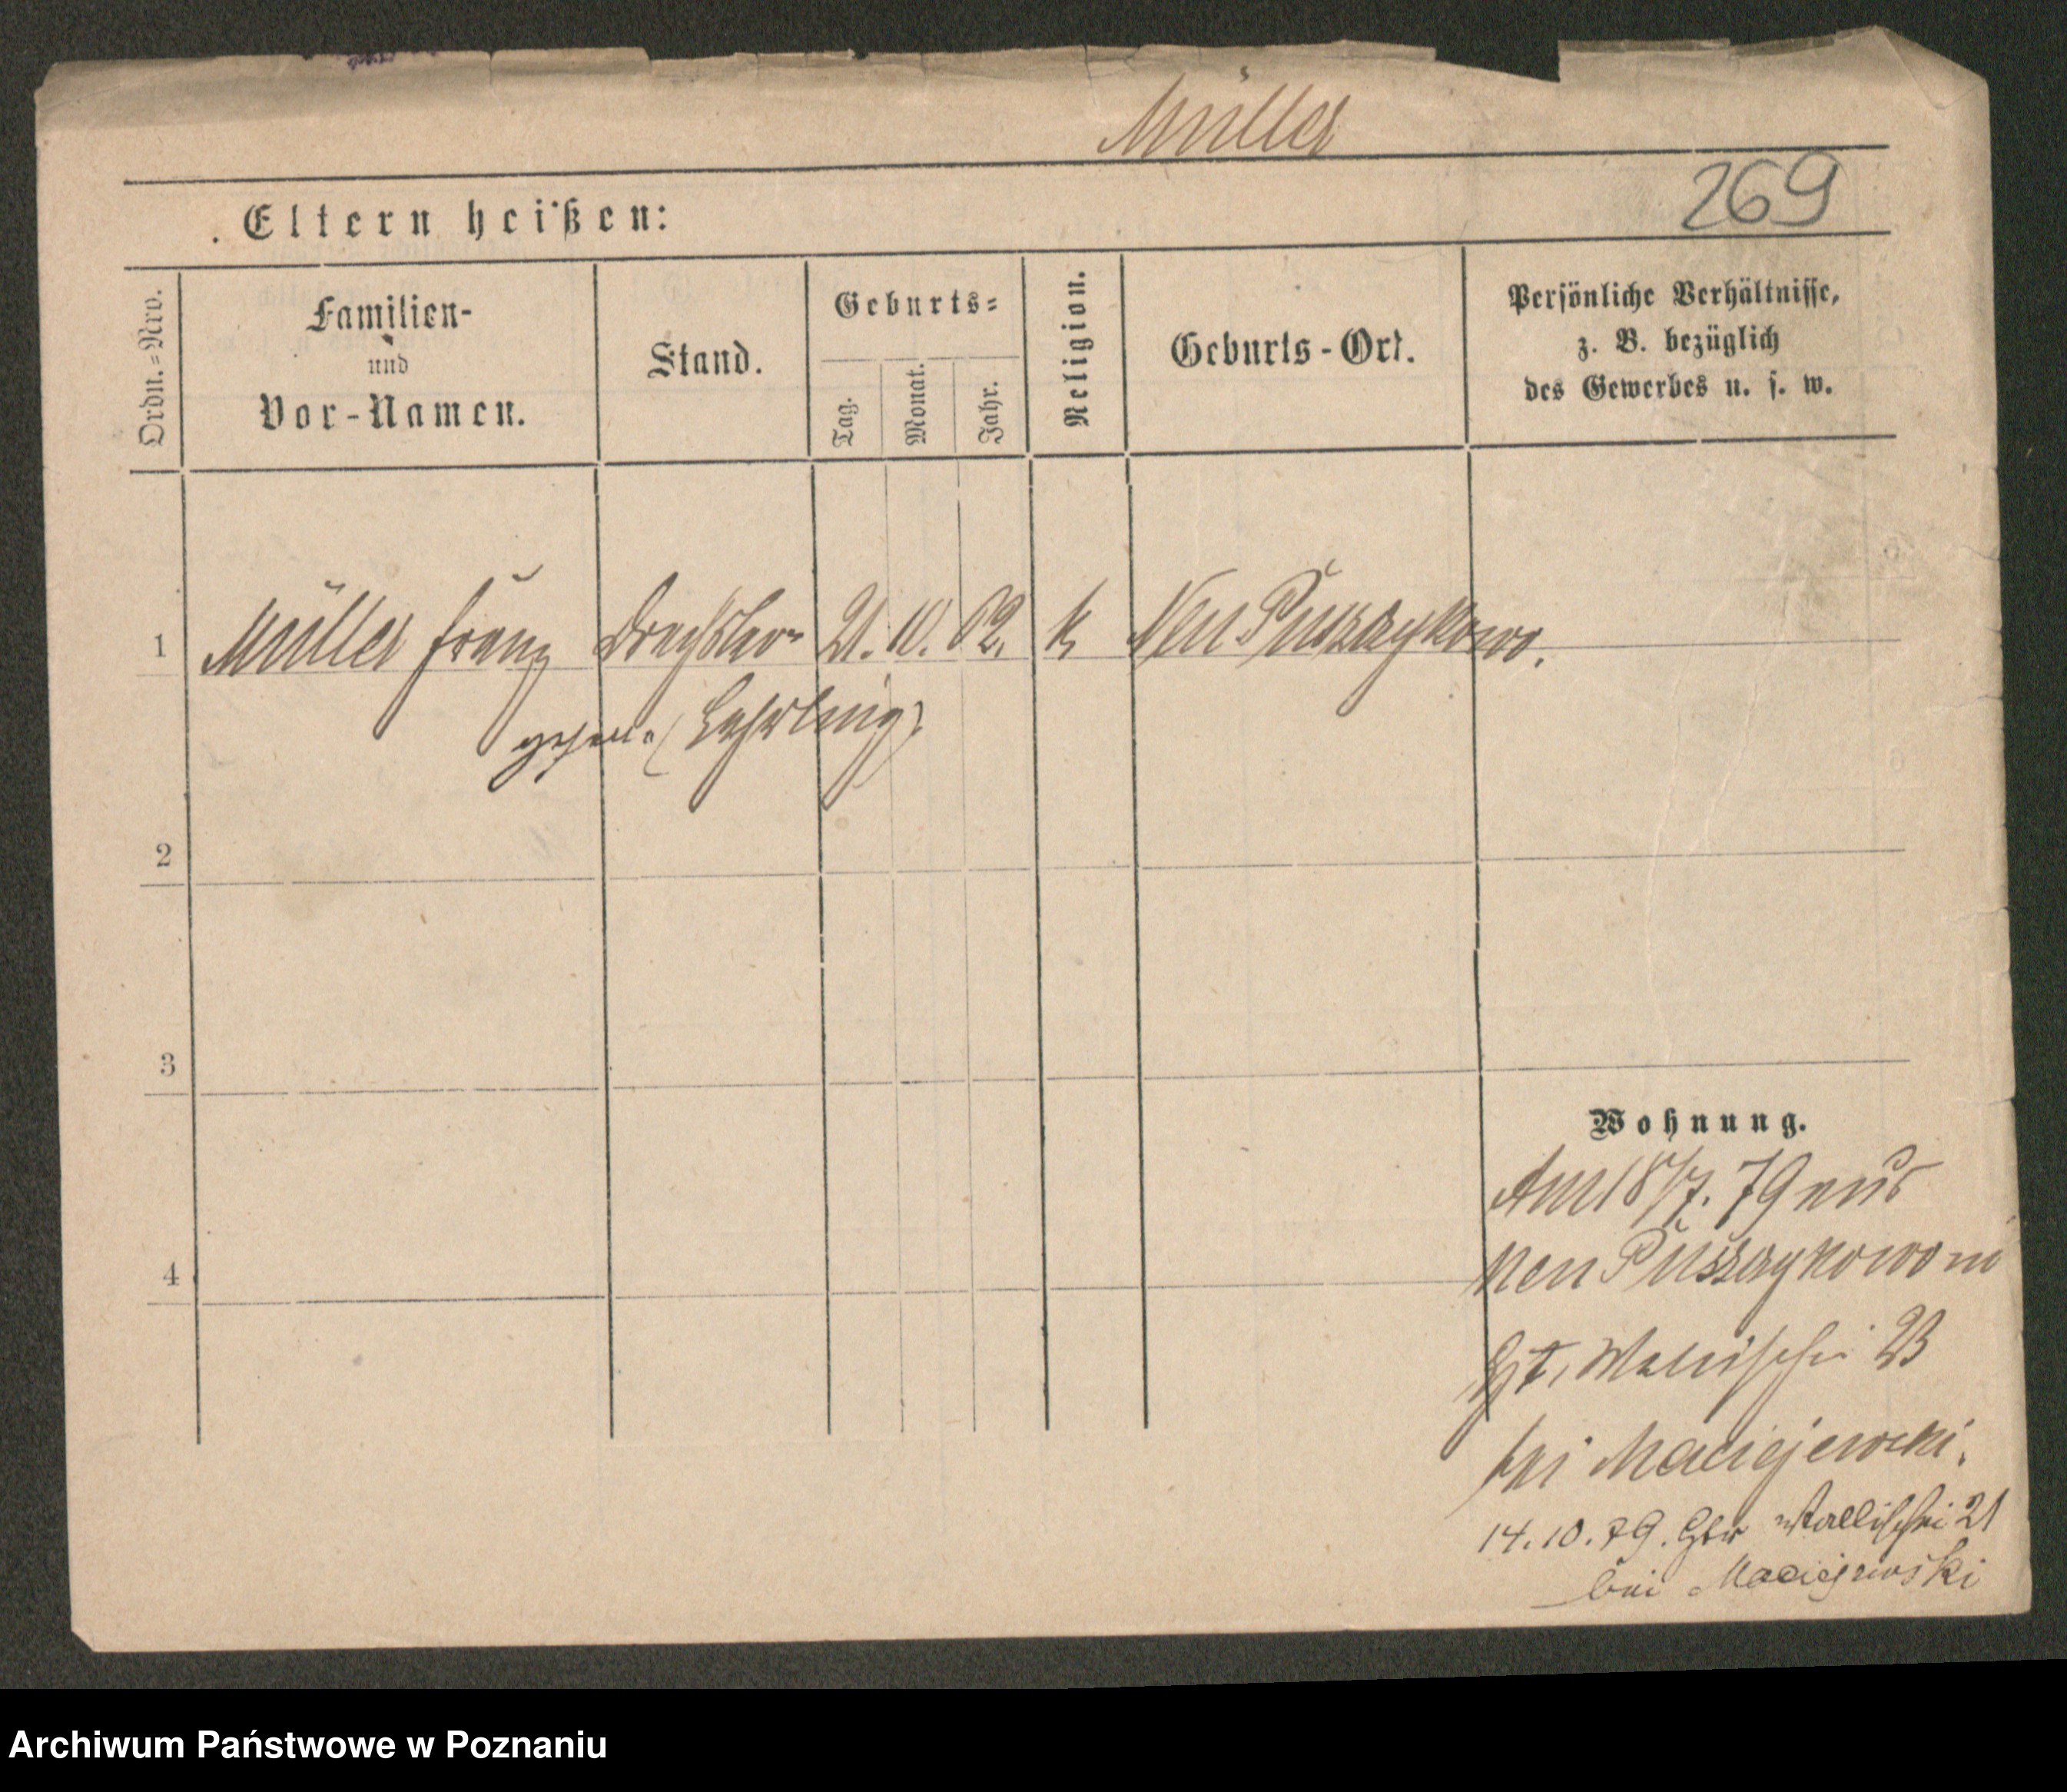 Müller
269
Eltern heißen:
Ordn.=Nro.
Familien- und Vor-Namen.
Stand.
Geburts=
Tag.
Monat.
Jahr.
Religion.
Geburts-Ort.
Persönliche Verhältnisse,
z. B. bezüglich
des Gewerbes u. s. w.
1 Müller Franz Drechsler- 21. 10. 62. k Neu Puszczykowo.
(Lehrling)
2
3
Wohnung.
Am 18/7. 79 aus
4
Neu Puszczykowo
Wallischei 23
bei Maciejewski.
14. 10. 79. Wallischei 21
bei Maciejewski
Archiwum Państwowe w Poznaniu